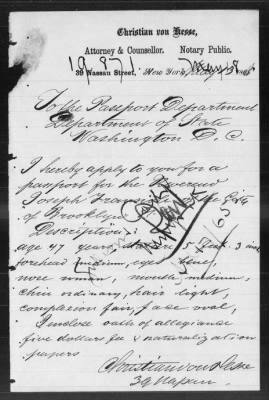 Christian von Hesse,
Attorney & Counsellor. Notary Public.
39 Nassau Street, New York,
19.871
To the Passport Department
Department of State
Washington D. C.
I hereby apply to you for a
passport for the
Joseph
of Brooklyn
Description:
age 47 years, 5 feet. 3 inch
forehead medium, eyes blue,
nose mouth, medium,
chin ordinary, hair light,
complexion fair, face oval,
I enclose oath of allegiance
five dollars fee & naturalization
papers
Christian von Hesse
39 Nassau